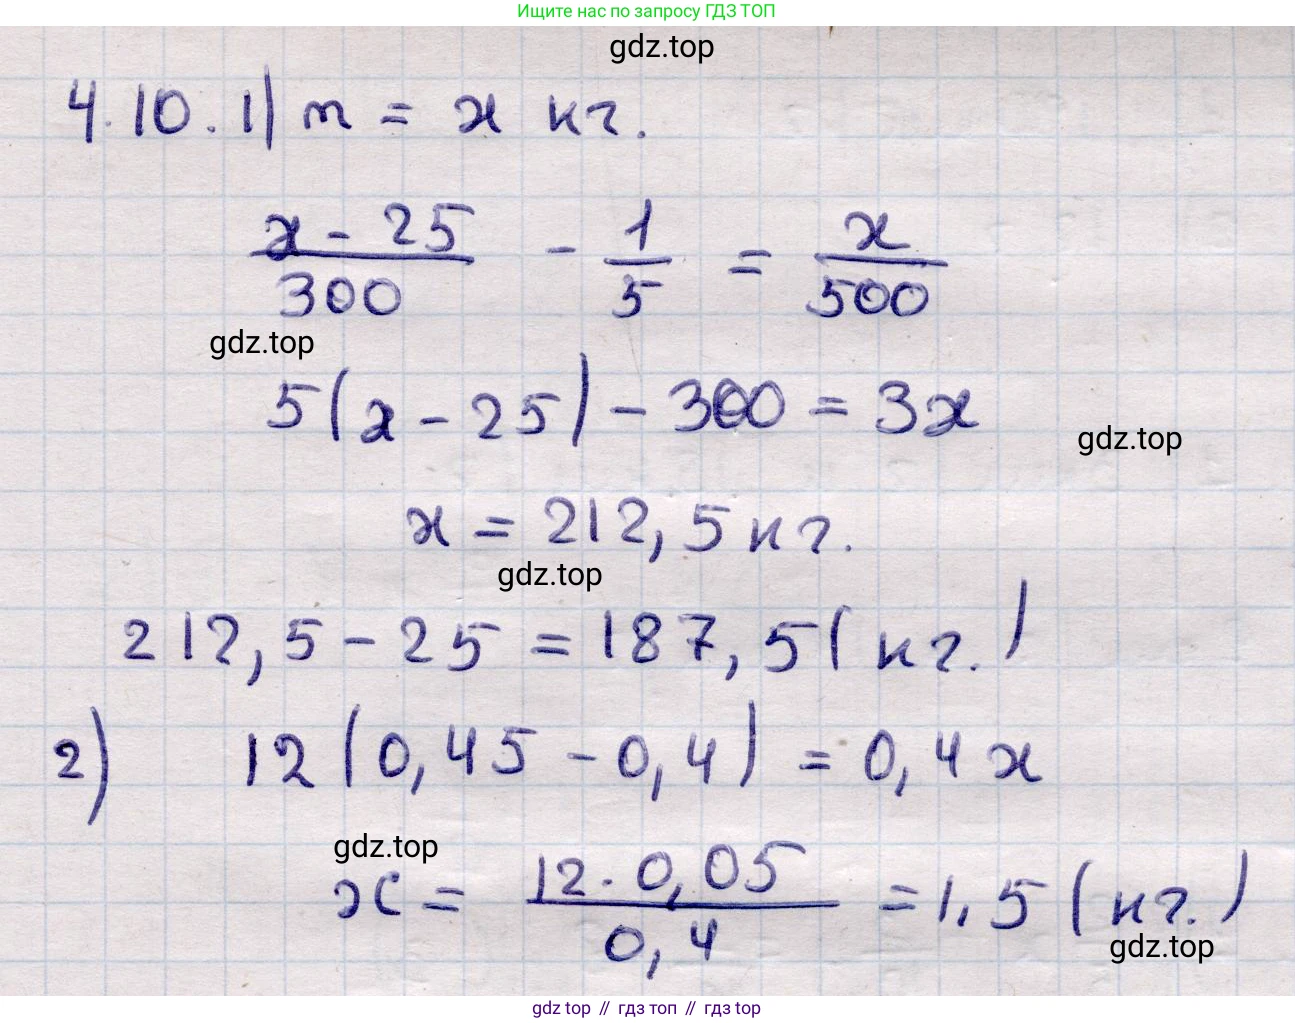 Ищите нас по запросу ГДЗ ТОП
gdz.top
4.10. 1) m = x кг.
(x - 25)/300 - 1/5 = x/500
gdz.top
5(x - 25) - 300 = 3x
gdz.top
x = 212,5 кг.
gdz.top
212,5 - 25 = 187,5 (кг.)
2) 12 (0,45 - 0,4) = 0,4 x
gdz.top
x = (12 · 0,05)/0,4 = 1,5 (кг.)
gdz.top
gdz top // гдз топ // гдз top